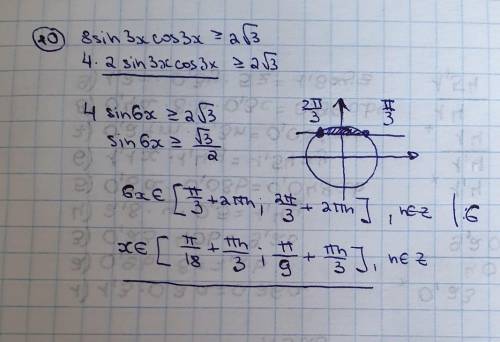 10) 8sin3xcos3x ≥ 2√3
4 · 2 sin3xcos3x ≥ 2√3
4 sin6x ≥ 2√3
sin6x ≥ √3/2
2π/3 π/3
6x ∈ [π/3 + 2πn ; 2π/3 + 2πn], n∈Z |:6
x ∈ [π/18 + πn/3 ; π/9 + πn/3], n∈Z